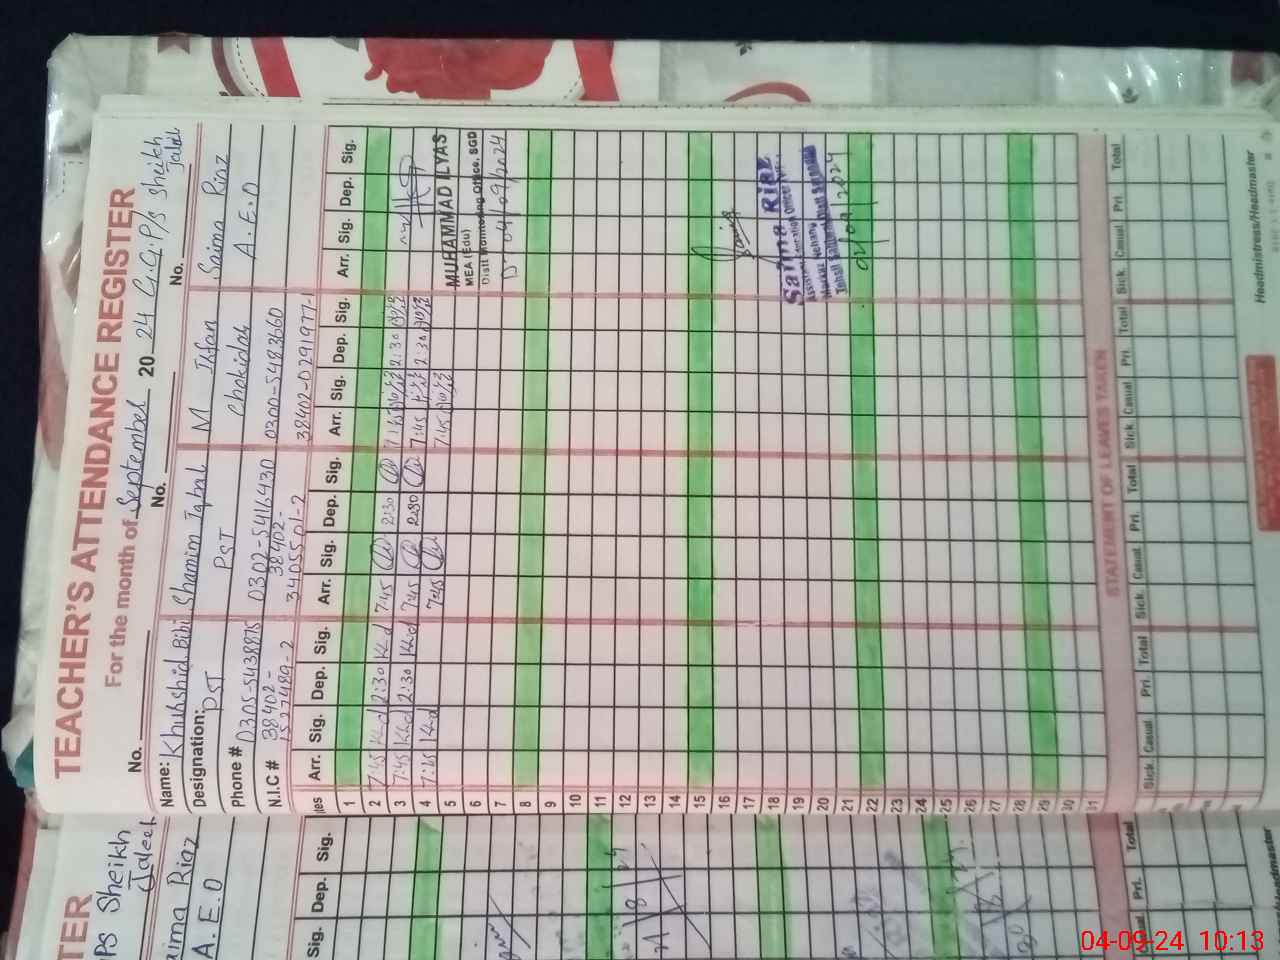 TEACHER'S ATTENDANCE REGISTER
For the month of September 20 24 G.G.P/S Sheikh Jaleel
No. No. No.
Name: Khurshid Bibi Shamim Iqbal M Irfan Saima Riaz
Designation: PST PST Chokidar A.E.O
Phone # 0305-5438875 0302-5416430 0300-5483660
N.I.C # 38402-1527489-2 38402-3405501-2 38402-0291977-1
Arr. Sig. Dep. Sig. Arr. Sig. Dep. Sig. Arr. Sig. Dep. Sig. Arr. Sig. Dep. Sig.
1
2 7:45 Kd 2:30 Kd 7:45 2:30 7:45 2:30
3 7:45 Kd 2:30 Kd 7:45 2:30 7:45 2:30
4 7:45 Kd 7:45 7:45
5
6
7
8
9
10
11
12
13
14
15
16
17
18
19
20
21
22
23
24
25
26
27
28
29
30
31
MUHAMMAD ILYAS
MEA (Edu)
Distt Monitoring Office, SGD
04/09/2024
Saima RIAZ
Assistant Education Officer
04/09/2024
STATEMENT OF LEAVES TAKEN
Sick Casual Pri. Total Sick Casual Pri. Total Sick Casual Pri. Total Sick Casual Pri. Total
Headmistress/Headmaster
TER
PS Sheikh Jaleel
aima Riaz
A.E.O
Sig. Dep. Sig.
Pri. Total
Headmaster
04-09-24 10:13